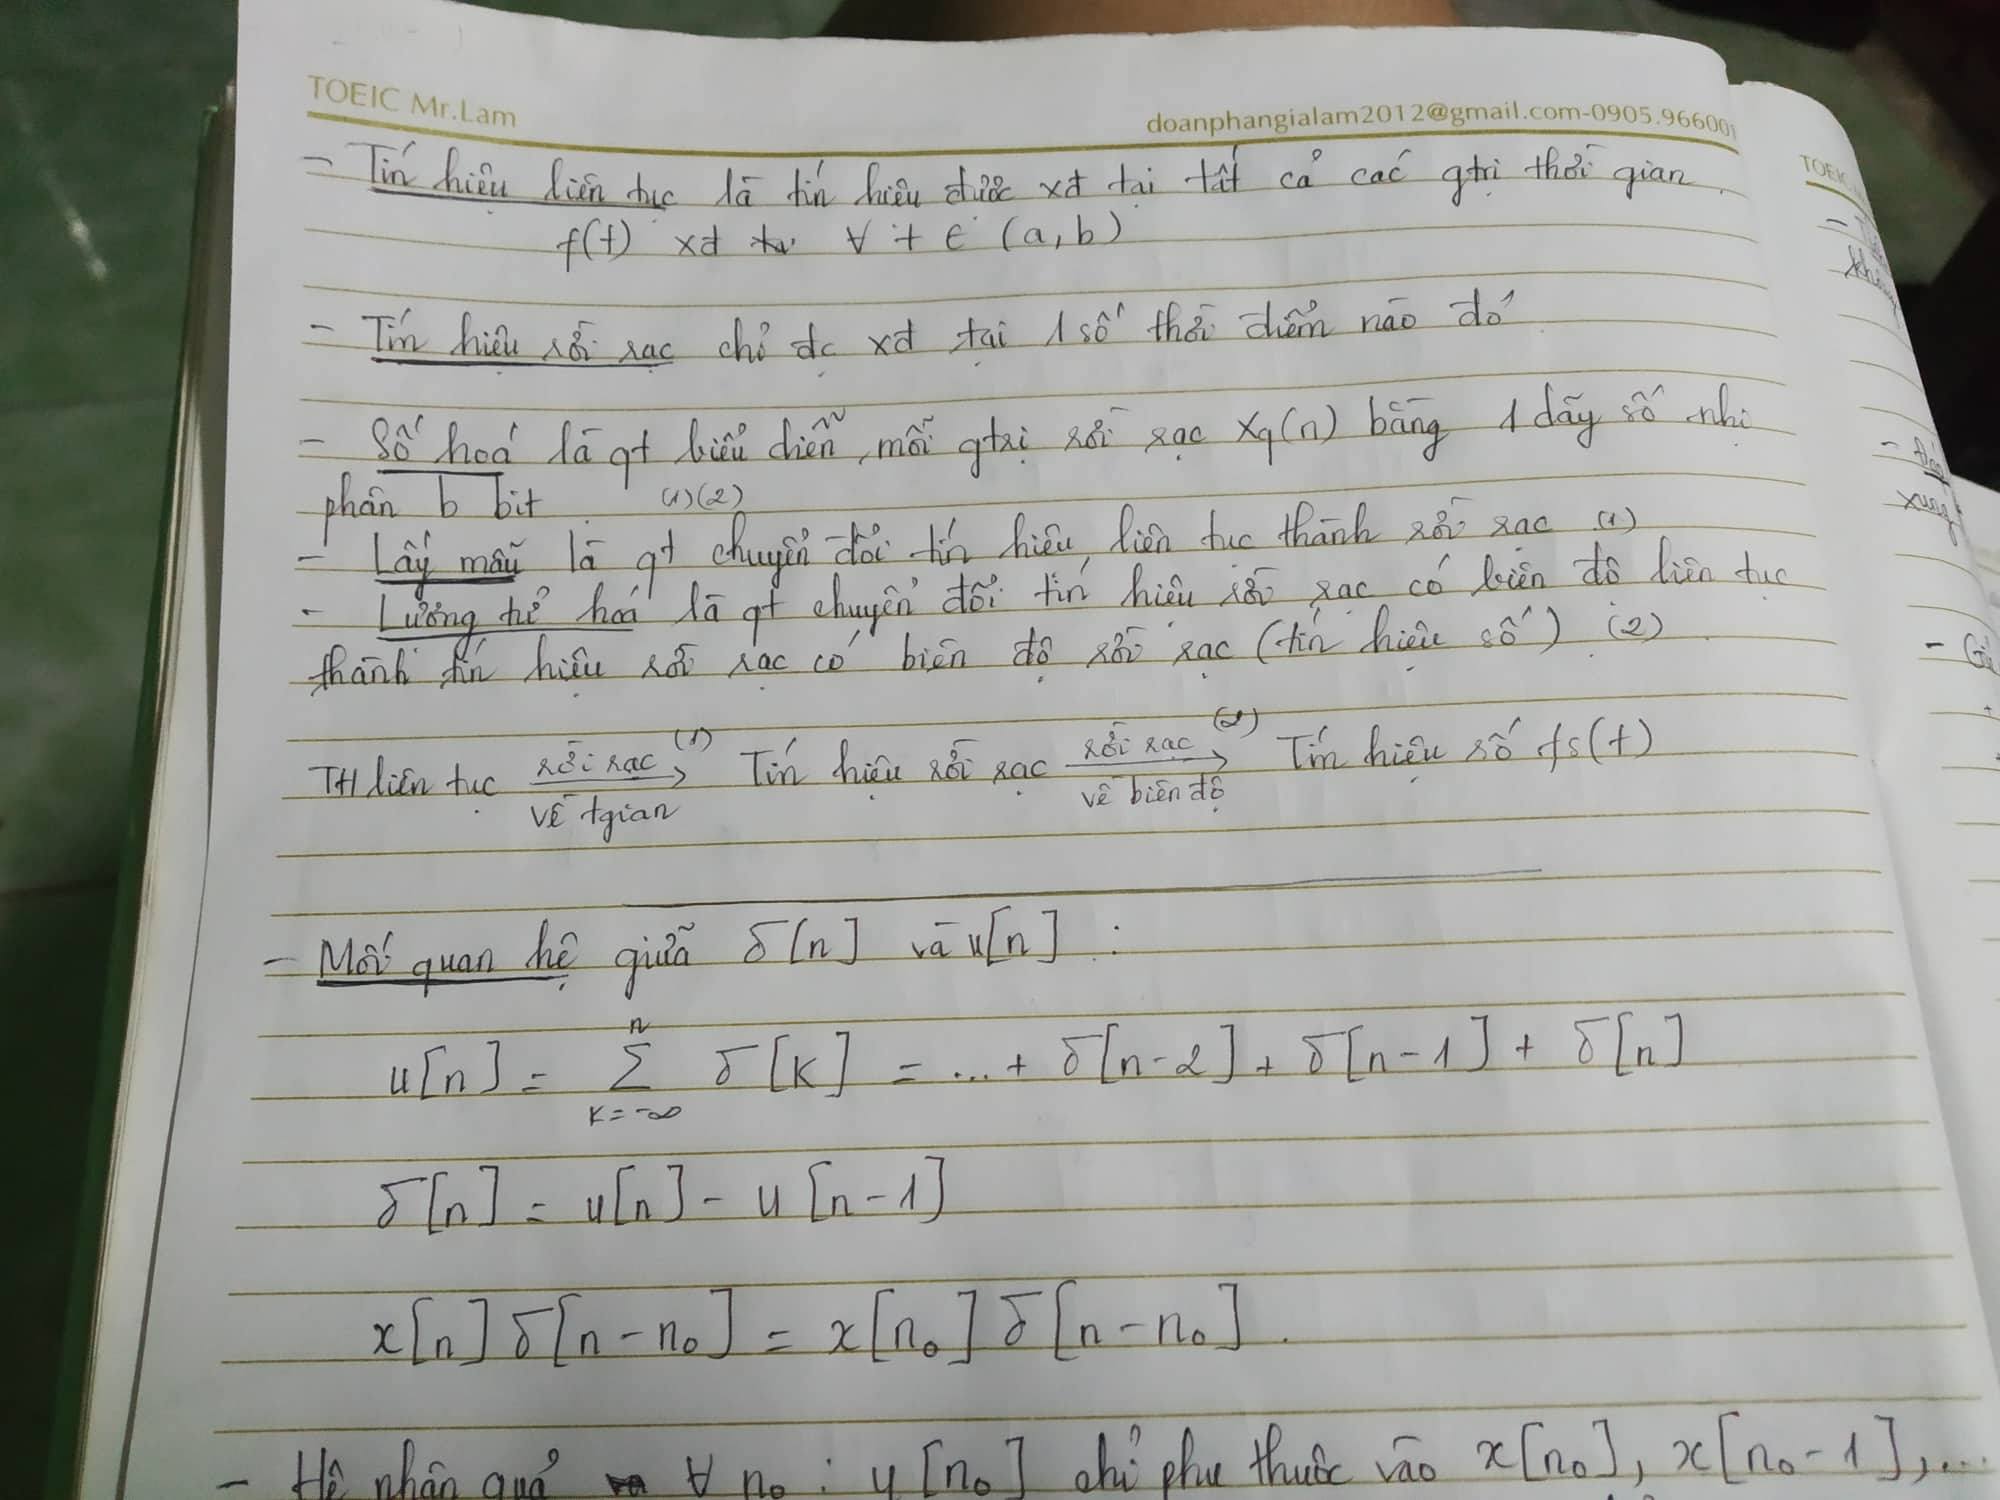 TOEIC Mr.Lam
doanphangialam2012@gmail.com-0905.966001
- Tín hiệu liên tục là tín hiệu được xđ tại tất cả các gtrị thời gian.
f(t) xđ ∀ t ∈ (a,b)
- Tín hiệu rời rạc chỉ đc xđ tại 1 số thời điểm nào đó
- Số hoá là qt biểu diễn mỗi gtrị rời rạc xq(n) bằng 1 dãy số nhị
phân b bit (1)(2)
- Lấy mẫu là qt chuyển đổi tín hiệu liên tục thành rời rạc (1)
- Lượng tử hoá là qt chuyển đổi tín hiệu rời rạc có biên độ liên tục
thành tín hiệu rời rạc có biên độ rời rạc (tín hiệu số) (2)
TH liên tục rời rạc (1) về tgian → Tín hiệu rời rạc rời rạc (2) về biên độ → Tín hiệu số fs(t)
- Mối quan hệ giữa δ[n] và u[n] :
u[n] = n Σ k=-∞ δ[k] = ...+ δ[n-2] + δ[n-1] + δ[n]
δ[n] = u[n] - u[n-1]
x[n] δ[n-n₀] = x[n₀] δ[n-n₀].
- Hệ nhân quả ∀ n₀ : y[n₀] chỉ phụ thuộc vào x[n₀], x[n₀-1],...
TOEIC
khung
xung